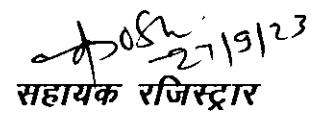 27/9/23
सहायक रजिस्ट्रार